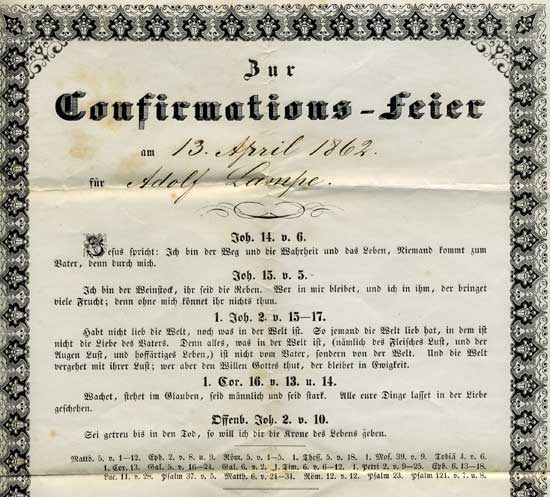 Zur
Confirmations-Feier
am 13. April 1862.
für Adolf Lampe.
Joh. 14. v. 6.
Jesus spricht: Ich bin der Weg und die Wahrheit und das Leben, Niemand kommt zum
Vater, denn durch mich.
Joh. 15. v. 5.
Ich bin der Weinstock, ihr seid die Reben. Wer in mir bleibet, und ich in ihm, der bringet
viele Frucht; denn ohne mich könnet ihr nichts thun.
1. Joh. 2. v. 15—17.
Habt nicht lieb die Welt, noch was in der Welt ist. So jemand die Welt lieb hat, in dem ist
nicht die Liebe des Vaters. Denn alles, was in der Welt ist, (nämlich des Fleisches Lust, und der
Augen Lust, und hoffärtiges Leben,) ist nicht vom Vater, sondern von der Welt. Und die Welt
vergehet mit ihrer Lust; wer aber den Willen Gottes thut, der bleibet in Ewigkeit.
1. Cor. 16. v. 13. u. 14.
Wachet, stehet im Glauben, seid männlich und seid stark. Alle eure Dinge lasset in der Liebe
geschehen.
Offenb. Joh. 2. v. 10.
Sei getreu bis in den Tod, so will ich dir die Krone des Lebens geben.
Matth. 5. v. 1—12. Eph. 2. v. 8. u. 9. Röm. 5. v. 1—5. 1. Thess. 5. v. 18. 1. Mos. 39. v. 9. Tobiä 4. v. 6.
1. Cor. 13. Gal. 5. v. 16—24. Gal. 6. v. 2. 1. Tim. 6. v. 6—12. 1. Petri 2. v. 9—25. Eph. 6. 13—18.
Luc. 11. v. 28. Psalm 37. v. 5. Matth. 6. v. 24—34. Röm. 12. v. 12. Psalm 23. Psalm 121. v. 7. u. 8.